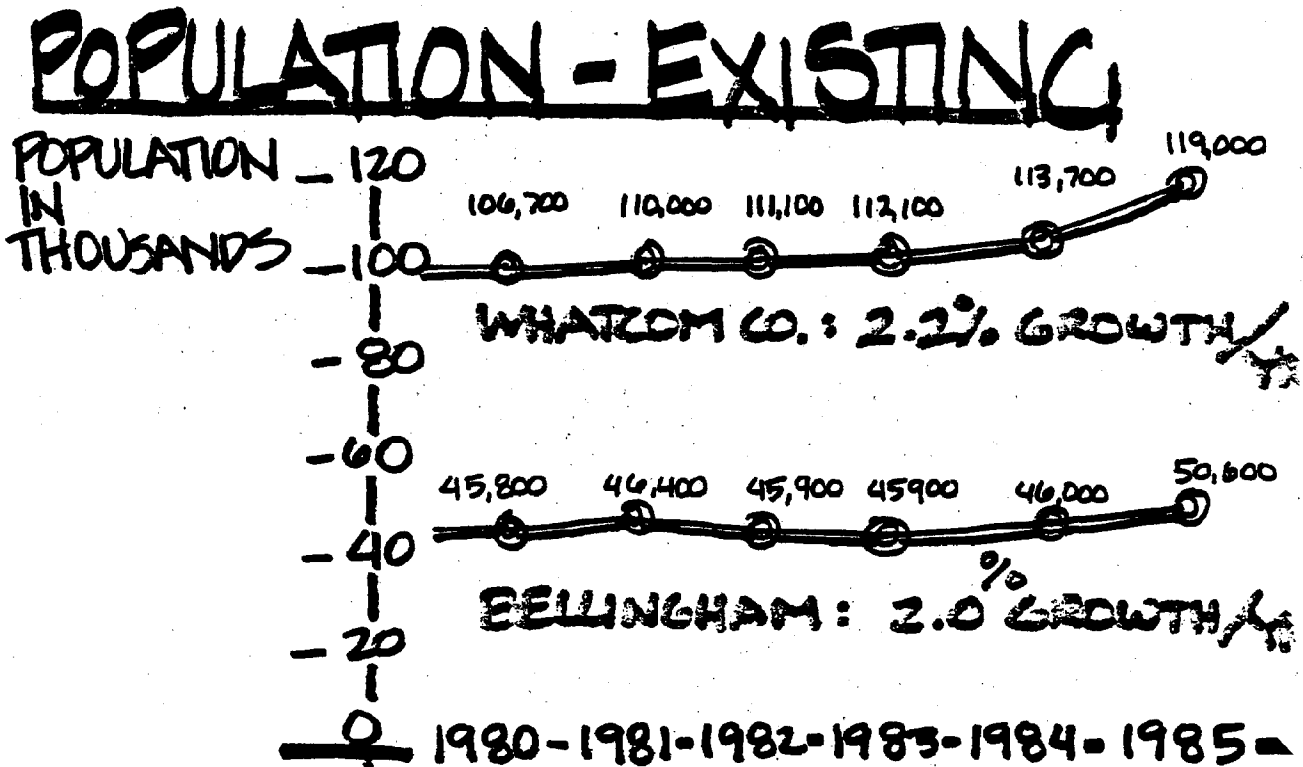 POPULATION - EXISTING
POPULATION
IN
THOUSANDS
120
100
80
60
40
20
0
106,700 110,000 111,100 112,100 113,700 119,000
WHATCOM CO. : 2.2% GROWTH/YR
45,800 46,400 45,900 45900 46,000 50,600
BELLINGHAM : 2.0% GROWTH/YR
1980 - 1981 - 1982 - 1983 - 1984 - 1985 -